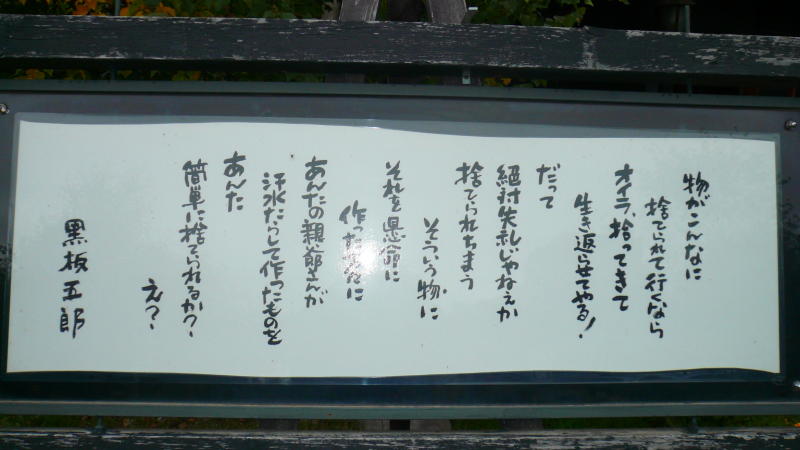 物がこんなに
捨てられて行くなら
オイラ、拾ってきて
生き返らせてやる！
だって
絶対失礼じゃねえか
捨てられちまう
そういう物に
それを懸命に
作った に
あんたの親爺さんが
汗水たらして作ったものを
あんた
簡単に捨てられるか？
え？
黒板五郎